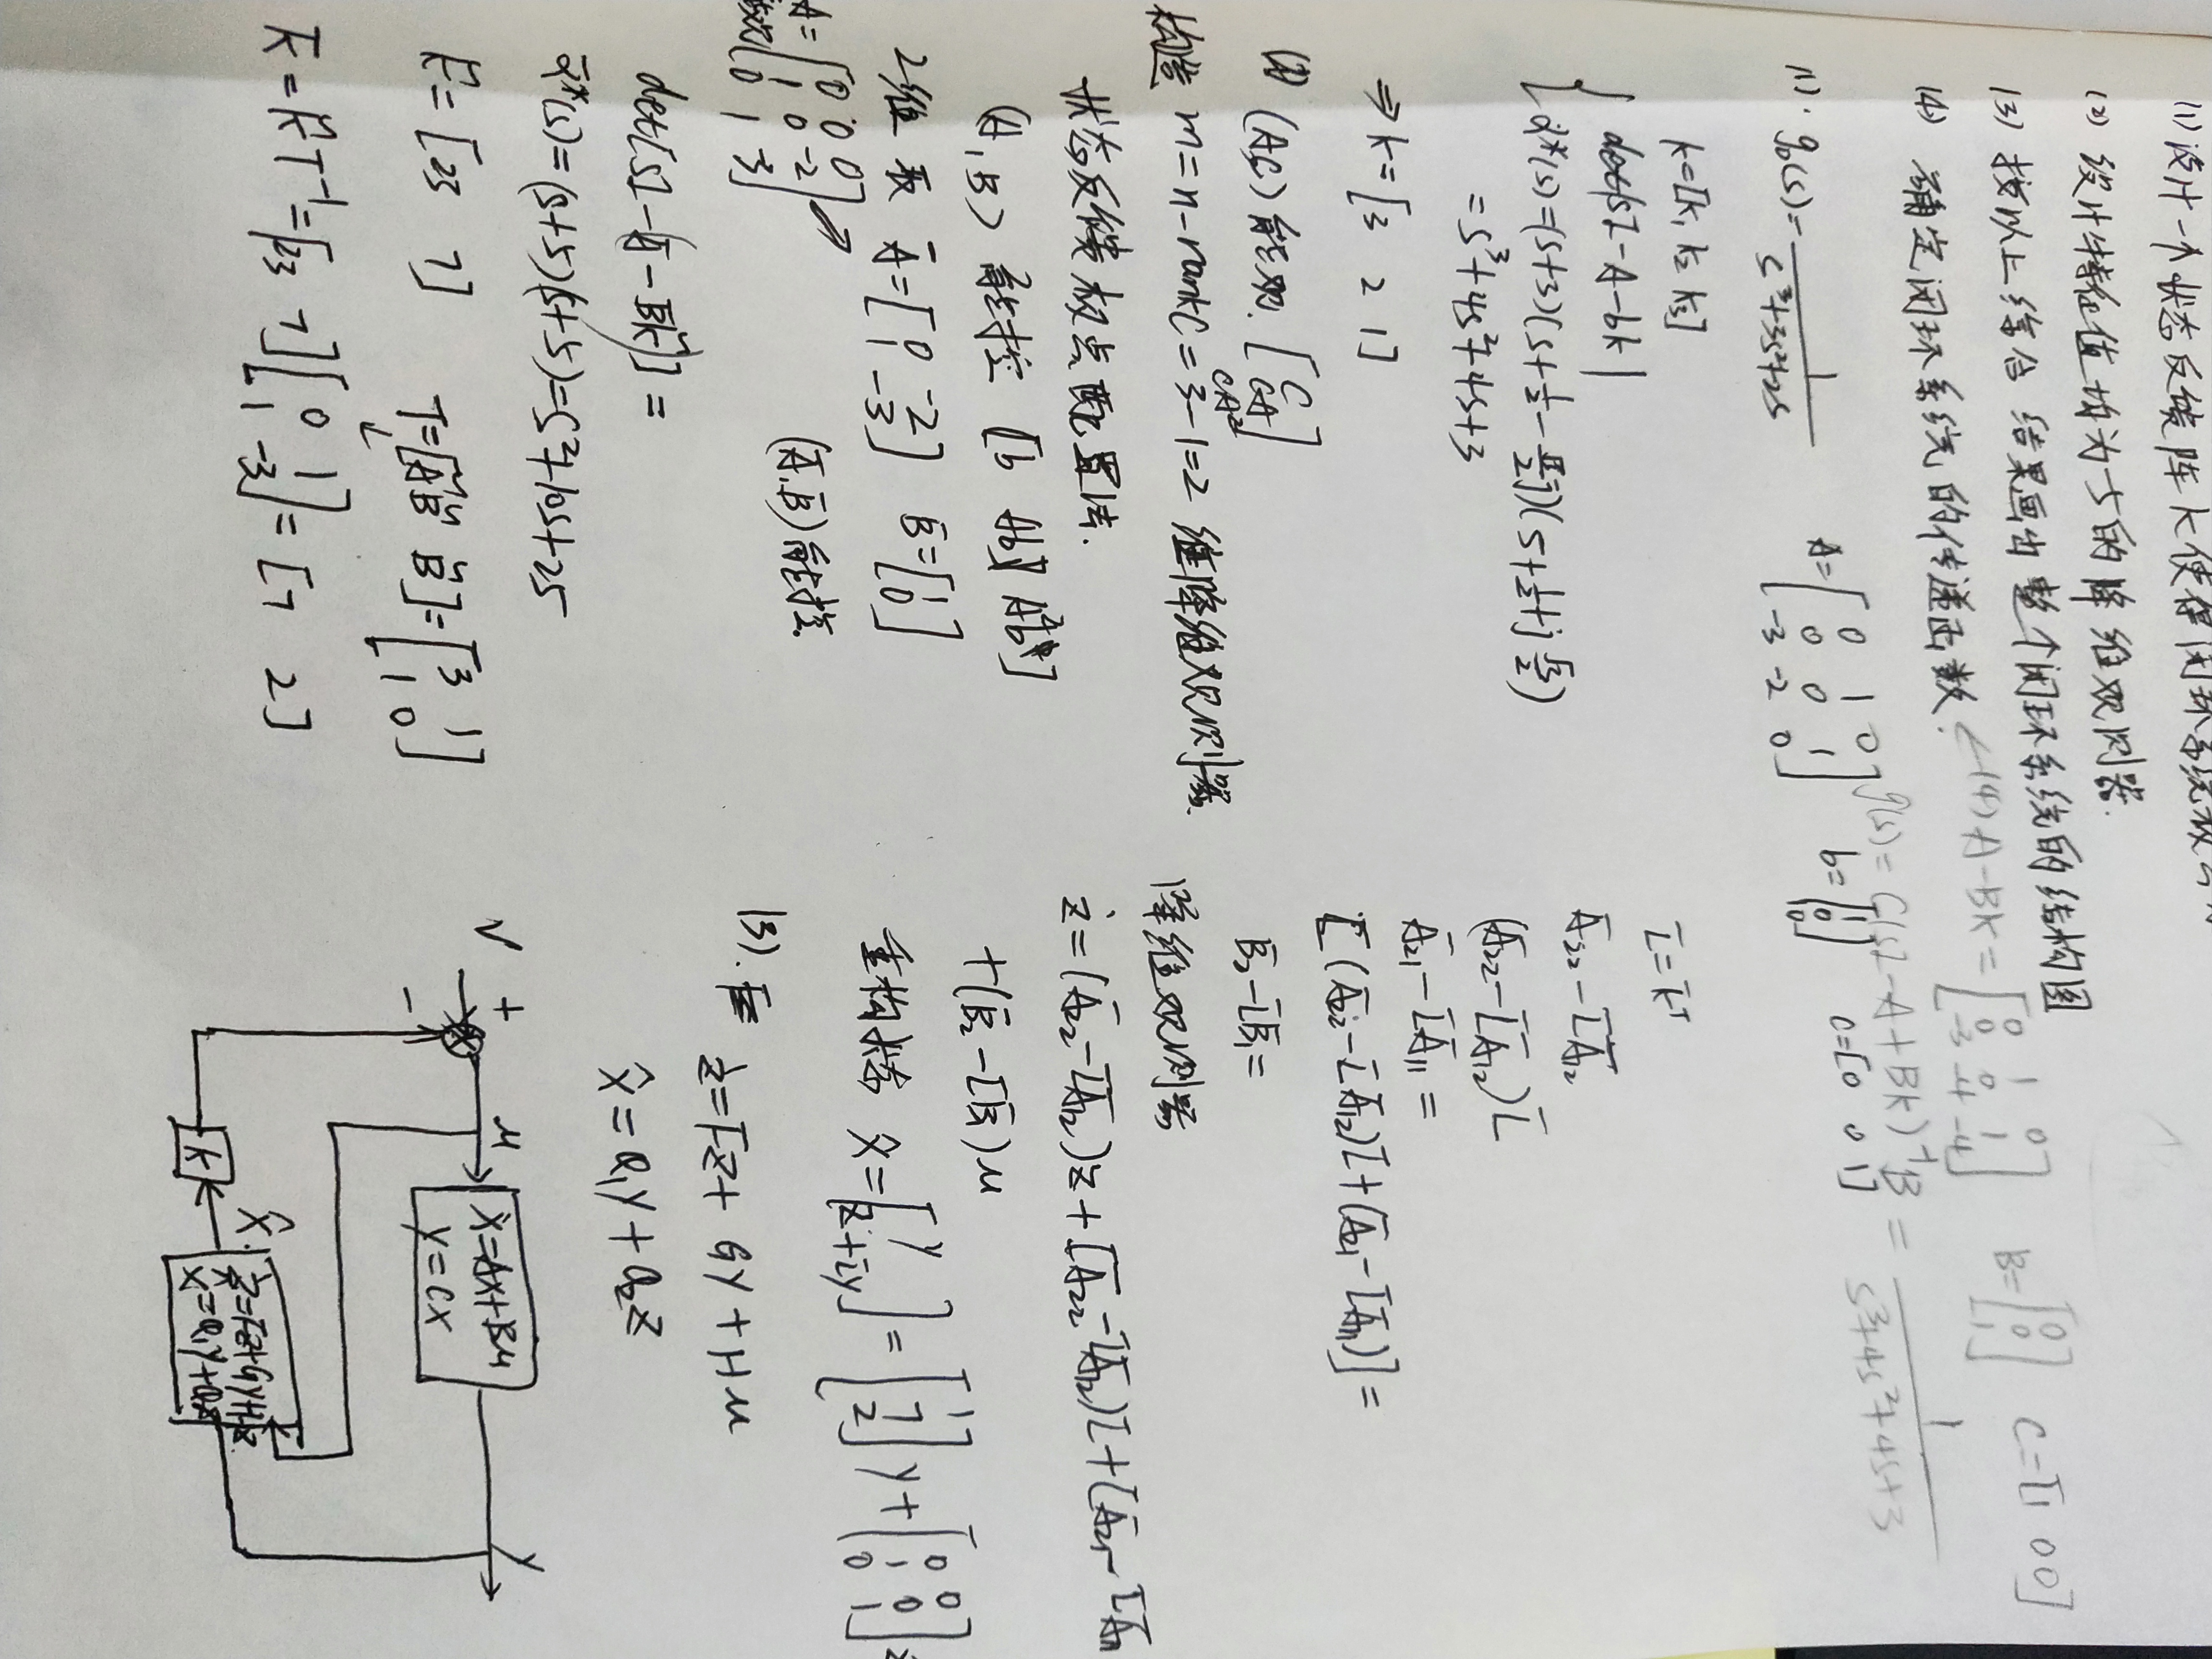 (1) 设计一个状态反馈阵K使得闭环系统极点
(2) 设计特征值均为-5的降维观测器.
(3) 按以上综合结果画出整个闭环系统的结构图
(4) 确定闭环系统的传递函数.
←(4) A-BK=[0 1 0; 0 0 1; -3 -4 -4] B=[0; 0; 1] C=[1 0 0]
g(s)=C(sI-A+BK)⁻¹B=1/(s³+4s²+4s+3)
(1). g₀(s)=1/(s³+3s²+2s) A=[0 1 0; 0 0 1; -3 -2 0] b=[1; 0; 0] c=[0 0 1]
k=[k₁ k₂ k₃]
{ det|sI-A-bk|
α*(s)=(s+3)(s+1/2-√3/2j)(s+1/2+j√3/2)
=s³+4s²+4s+3
⇒k=[3 2 1]
(2) (A,C)能观. [C; CA; CA²]
构造 m=n-rankC=3-1=2 维降维观测器.
状态反馈极点配置法.
(A,B) 能控 [b Ab A²b]
2维 取 Ā=[0 -2; 1 -3] B̄=[1; 0]
A=[0 0 0; 1 0 -2; 0 1 -3] ↗
(Ā,B̄)能控.
det[sI-(Ā-B̄K̃)]=
ᾱ*(s)=(s+5)(s+5)=s²+10s+25
K̃=[23 7] T=[ÃB̃ B̃]=[3 1; 1 0]
↓
K̄=K̃T⁻¹=[23 7][0 1; 1 -3]=[7 2]
L̄=K̄ᵀ
Ā₂₂-L̄Ā₁₂
(Ā₂₂-L̄Ā₁₂)L̄
Ā₂₁-L̄Ā₁₁=
[(Ā₂₂-L̄Ā₁₂)L̄+(Ā₂₁-L̄Ā₁₁)]=
B̄₂-L̄B̄₁=
降维观测器
ż=(Ā₂₂-L̄Ā₁₂)z+[Ā₂₂-L̄Ā₁₂)L̄+(Ā₂₁-L̄Ā₁₁
+(B̄₂-L̄B̄₁)u
重构状态 x̂=[y; z+L̄y]=[1; 7; 2]y+[0 0; 1 0; 0 1]z
(3). ż=Fz+Gy+Hu
x̂=Q₁y+Q₂z
V + u ẋ=Ax+Bu y
y=Cx
-
x̂ ż=Fz+Gy+Hz
K x̂=Q₁y+Q₂z